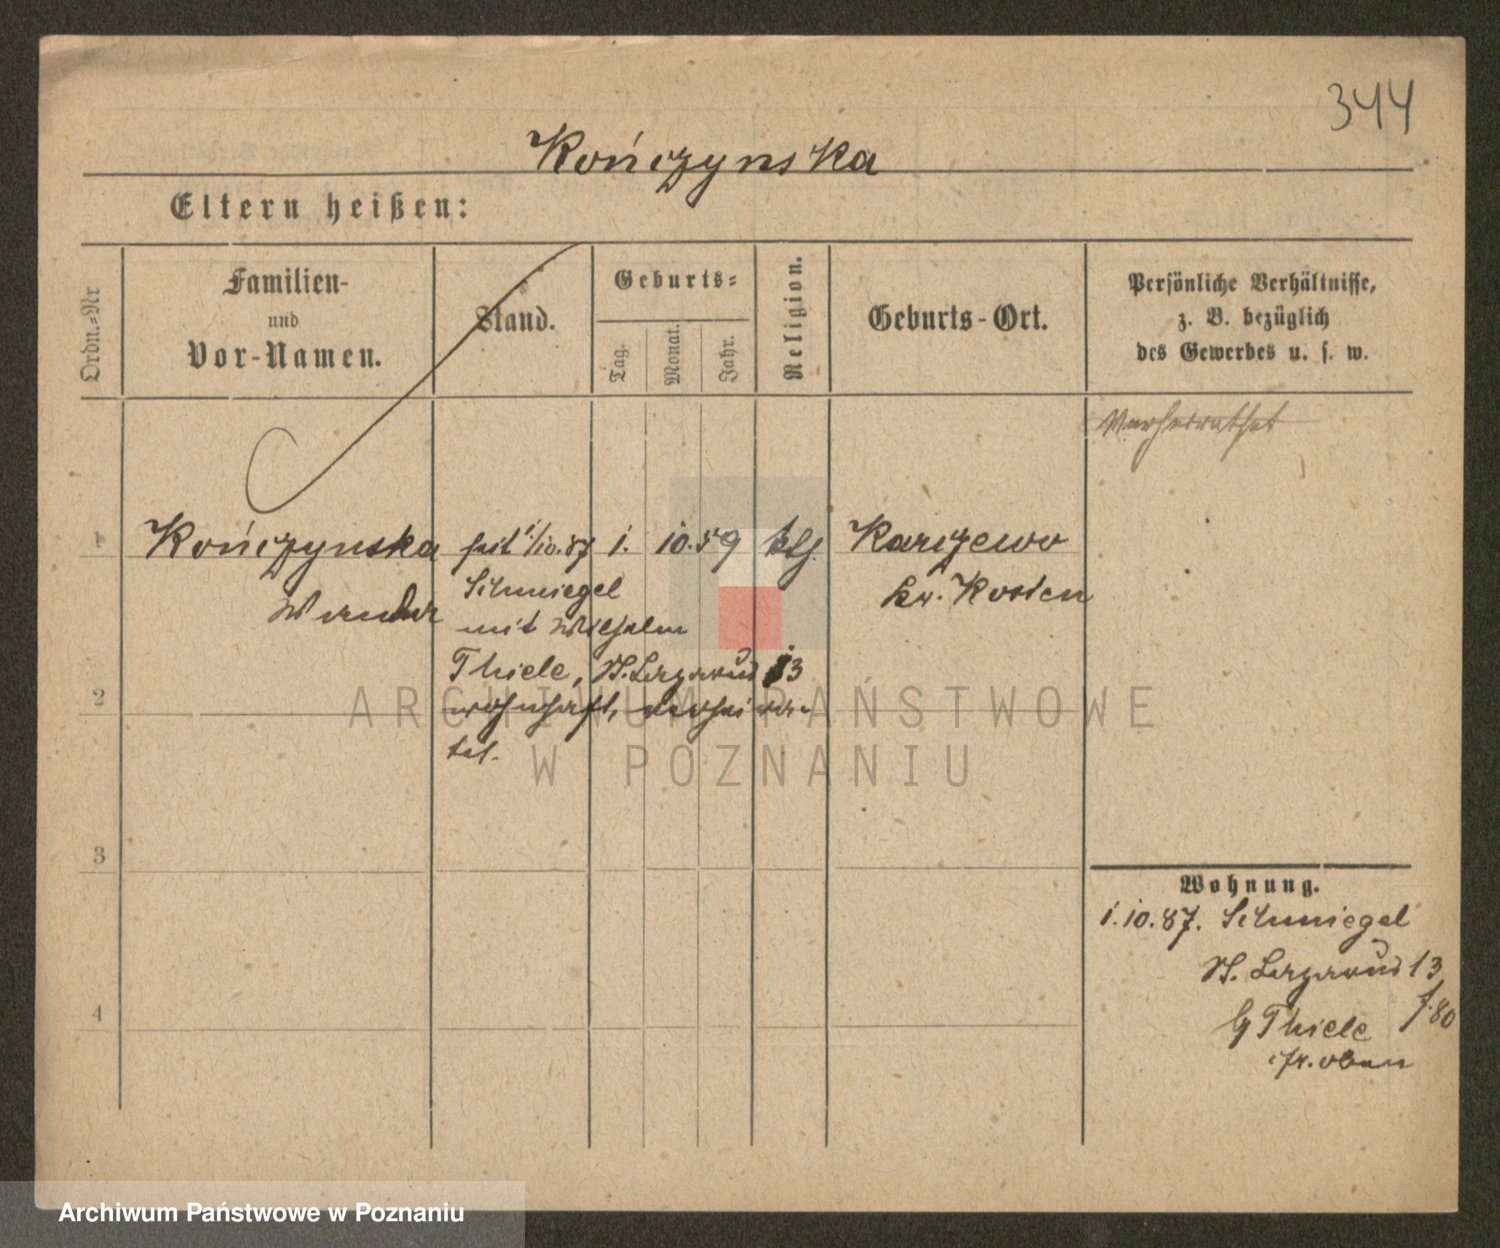 344
Kończynska
Eltern heißen:
Ordn.=Nr
Familien-
und
Vor-Namen.
Stand.
Geburts=
Tag.
Monat.
Jahr.
Religion.
Geburts-Ort.
Persönliche Verhältnisse,
z. B. bezüglich
des Gewerbes u. s. w.
Verheirathet
1 Kończynska seit 1/10.87 1. 10. 59 ktl. Karczewo
Wanda Schmiegel kr. Kosten
mit Wilhelm
Thiele, St. Lazarus 13
2 wohnhaft, verheira-
tet.
3
4
Wohnung.
1.10.87. Schmiegel
St. Lazarus 13
f. 80
Thiele
oben
ARCHIWUM PAŃSTWOWE
W POZNANIU
Archiwum Państwowe w Poznaniu